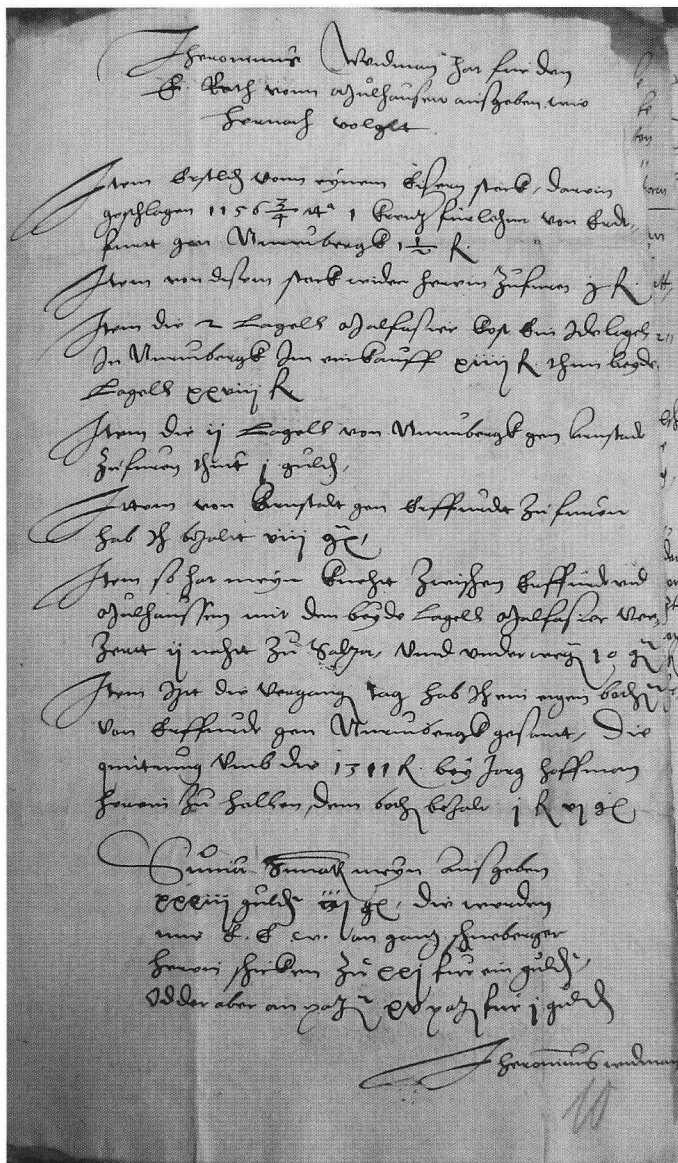 Jheronimus Widman hat fur den
E. Rath vonn Mulhausen ausgeben, wie
hernach volgtt
Item Erstlich vonn eynem Eisern stock, darin
geschlagen 1156 3/4 1 Furlohn von Erdt-
furtt gen Nurnbergk 1 1/2 fl
Item von disem stock wider herein zufuren j fl
Item die 2 Lagell Malfasier kost ein Jde lagel
In Nurnbergk Im einkauff xiiij fl thun beyde
Lagell xxviij fl
Item die ij Lagell von Nurnbergk gen Arnstadt
zufuren thut j guld
Item von Arnstadt gen Erffurdt zufuren
hab Ich bezalt viij gr
Item so hat meyn knecht zwischen Erffurdt und
Mulhaussen mit den beyde lagell Malfasier ver-
zertt ij nacht zu Salza, unnd underweg 10 gr
Item die vergang tag hab Ich ein eigen
von Erffurdt gen Nurnbergk gesant, Die
quittung umb die 1311 fl bey Jorg Hoffman
herein zu hollen, dem bezalt j fl vj gr
Suma Sumarum meyn Ausgeben
xxxiij guld iiij gr, die werden
mir E. E. w. an gang schneberger
herein schicken zu xxj fur ein guld
Odder aber an patz xv patz fur j guld
Jheronimus widman
10